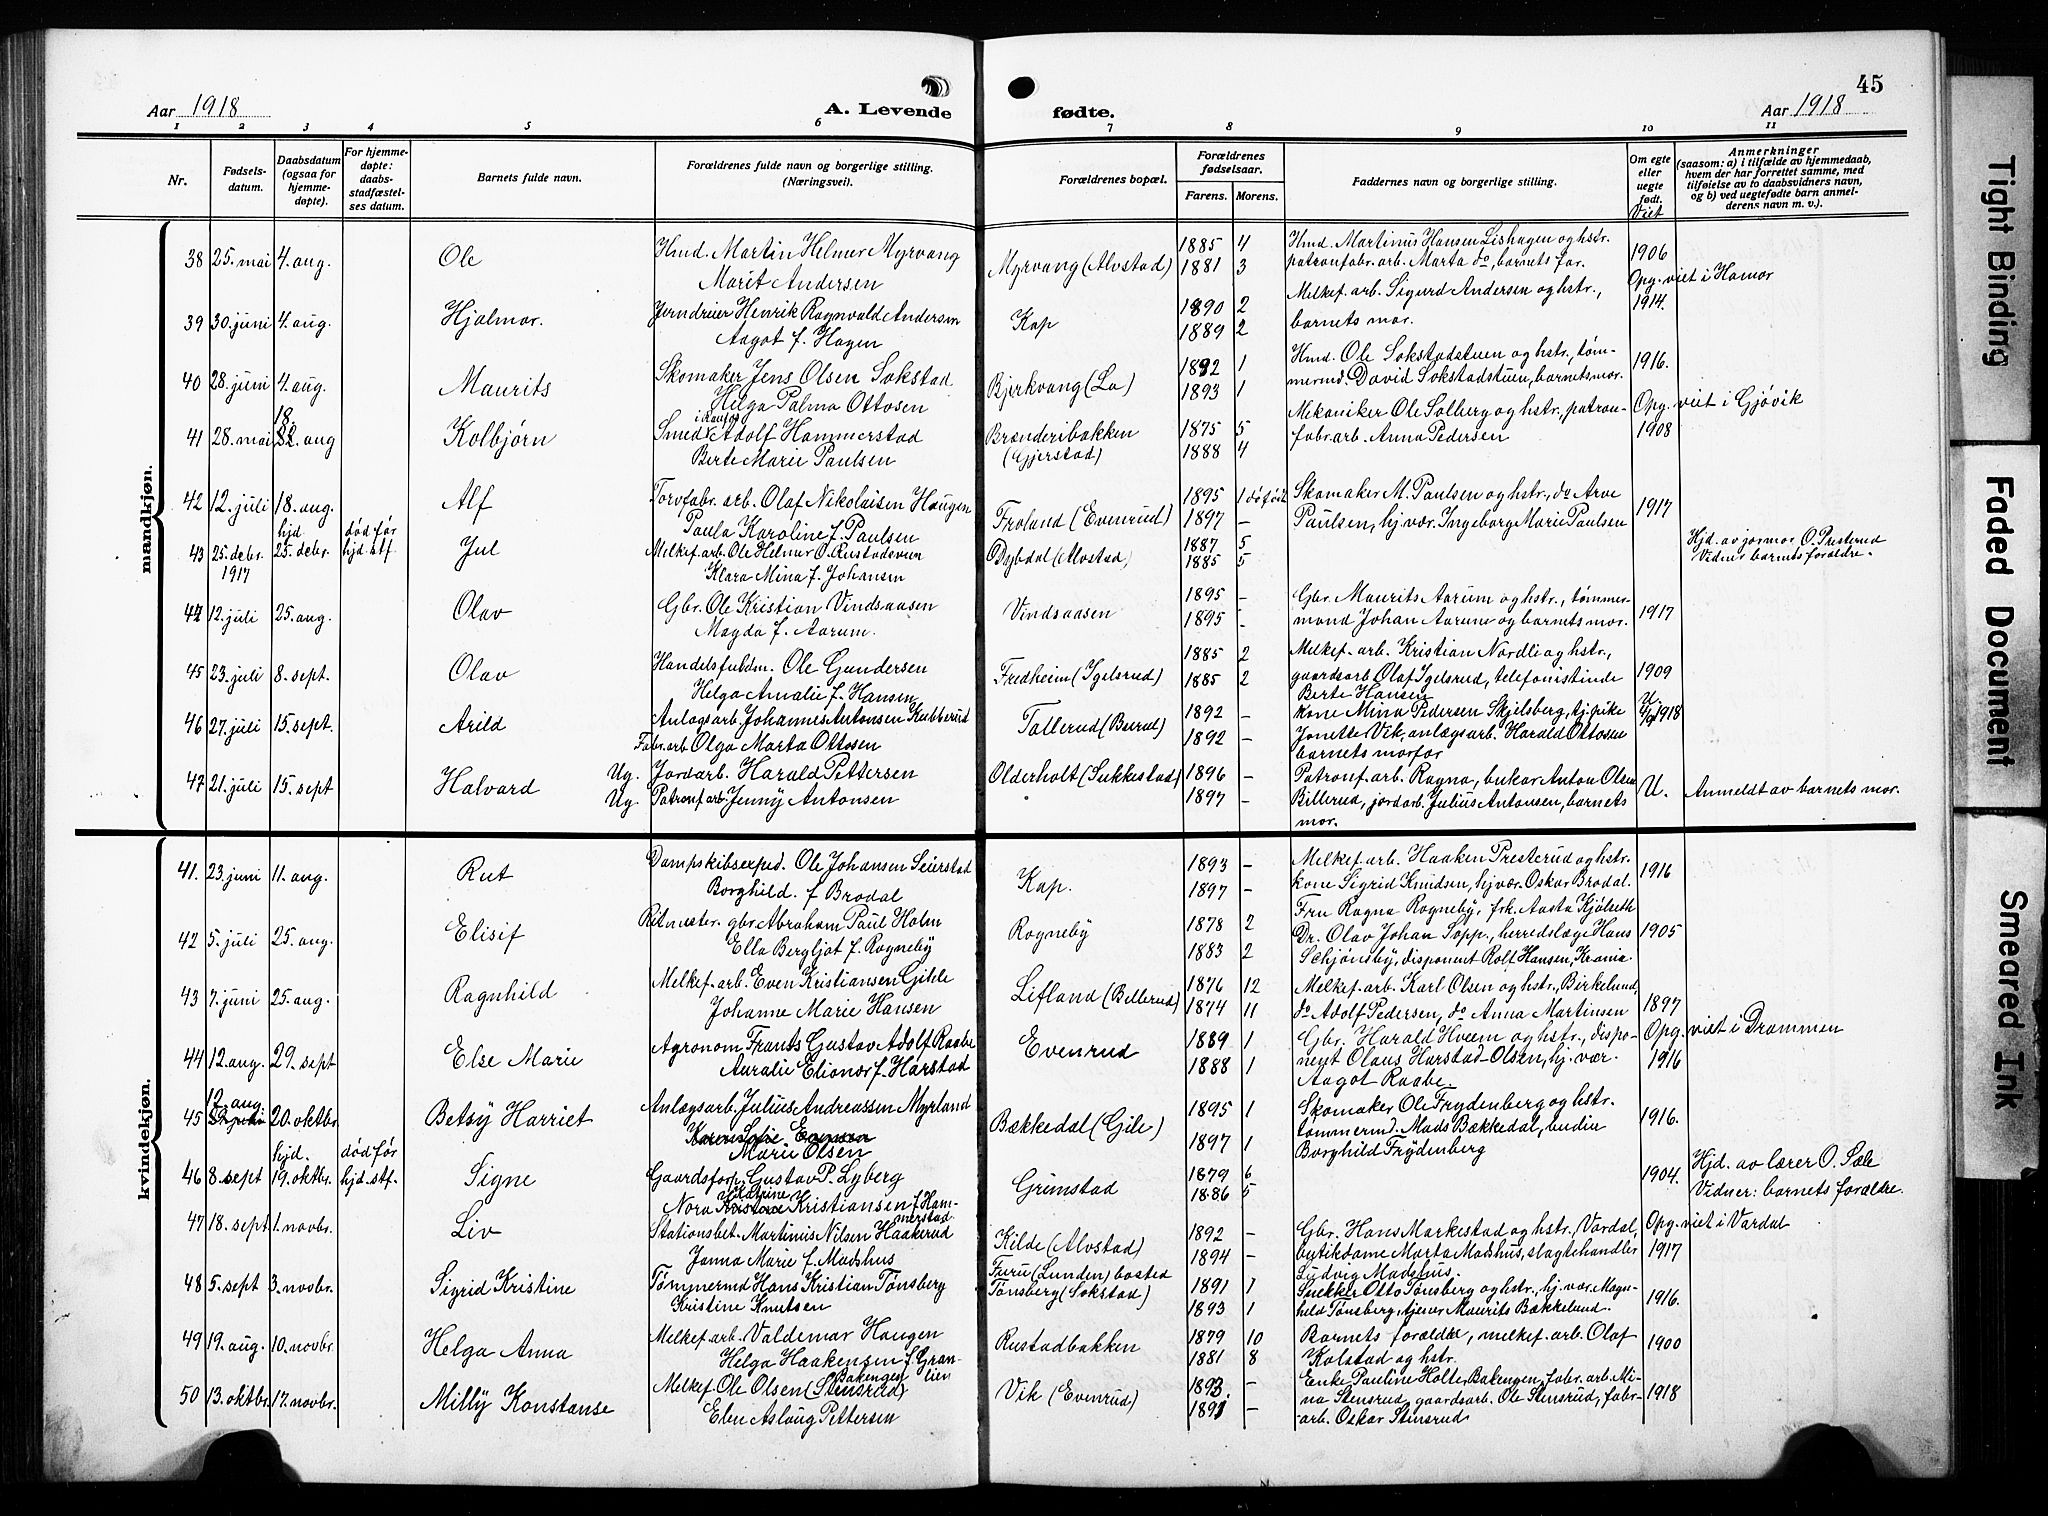 45
Aar 1918 A. Levende fødte. Aar 1918
1 2 3 4 5 6 7 8 9 10 11
Nr. Fødsels-datum. Daabsdatum (ogsaa for hjemme-døpte). For hjemme-døpte: daabs-stadfæstel-ses datum. Barnets fulde navn. Forældrenes fulde navn og borgerlige stilling. (Næringsvei). Forældrenes bopæl. Forældrenes fødselsaar. Farens. Morens. Faddernes navn og borgerlige stilling. Om egte eller uegte født. Viet Anmerkninger (saasom: a) i tilfælde av hjemmedaab, hvem der har forrettet samme, med tilføielse av to daabsvidners navn, og b) ved uegtefødte barn anmel-derens navn m. v.).
mandkjøn.
38 25. mai 4. aug. Ole Hmd. Martin Helmer Myrvang Marit Andersen Myrvang (Alvstad) 1885 4 1881 3 Hmd. Martinus Hansen Lishagen og hstr. patronfabr. arb. Marta do, barnets far. 1906
39 30. juni 4. aug. Hjalmar. Jerndreier Henrik Ragnvald Andersen Aagot f. Hagen Kap 1890 2 1889 2 Melkef. arb. Sigurd Andersen og hstr., barnets mor. Opg. viet i Hamar 1914.
40 28. juni 4. aug. Maurits Skomaker Jens Olsen Sokstad Helga Palma Ottosen Bjerkvang (La) 1892 1 1893 1 Hmd. Ole Sokstadstuen og hstr., tøm-mermd. David Sokstadstuen, barnets mor. 1916.
41 28. mai 18. aug Kolbjørn Smed i Raufos Adolf Hammerstad Berte Marie Paulsen Brænderibakken (Gjerstad) 1875 5 1888 4 Mekaniker Ole Solberg og hstr., patron-fabr. arb. Anna Pedersen Opg. viet i Gjøvik 1908
42 12. juli 18. aug. Alf Torvfabr. arb. Olaf Nikolaisen Haugen Paula Karoline f. Paulsen Froland (Evenrud) 1895 1 dødfødt 1897 - Skomaker M. Paulsen og hstr., do Arve Paulsen, hj. vær. Ingeborg Marie Paulsen 1917
43 25. debr. 1917 hjd 25. debr. død før hjd. stf. Jul Melkef. arb. Ole Helmer O. Rustadsveen Klara Mina f. Johansen Dybdal (Alvstad) 1887 5 1885 5 Hjd. av jormor O. Presterud Vidner barnets foraldre.
44 12. juli 25. aug. Olav Gbr. Ole Kristian Vindsaasen Magda f. Aarum. Vindsaasen 1895 - 1895 - Gbr. Maurits Aarum og hstr., tømmer-mand Johan Aarum og barnets mor. 1917
45 23. juli 8. sept. Olav Handelsfuldm. Ole Gundersen Helga Amalie f. Hansen Fredheim (Igelsrud) 1885 2 1885 2 Melkef. arb. Kristian Nordli og hstr., gaardsarb. Olaf Igelsrud, telefonistinde Berte Hansen 1909
46 27. juli 15. sept. Arild Anlægsarb. Johannes Antonsen Kubberud Fabr. arb. Olga Marta Ottosen Tallerud (Buirud) 1892 - 1892 - Kone Mina Pedersen Skjelsberg, tj. pike Jonette Vik, anlægsarb. Harald Ottosen barnets morfar 1918
47 21. juli 15. sept Halvard Ug. Jordarb. Harald Pettersen Ug. Patronf. arb. Jenny Antonsen Olderholt (Sukkestad) 1896 - 1897 - Patronf. arb. Ragna, bruker Anton Olsen Billerud, jordarb. Julius Antonsen, barnets mor. U. Anmeldt av barnets mor.
kvindekjøn.
41. 23. juni 11. aug. Rut Dampskibsexped. Ole Johansen Seierstad Borghild. f Brodal Kap. 1893 - 1897 - Melkef. arb. Haaken Presterud og hstr. kone Sigrid Knudsen, hj. vær. Oskar Brodal. 1916
42 5. juli 25. aug. Elisif Ritmester. gbr. Abraham Paul Holm Ella Bergljot f. Rogneby Rogneby 1878 2 1883 2 Fru Ragna Rogneby, frk. Aasta Kjølseth Dr. Olav Johan Sopp., herredslæge Hans Schjønsby, disponent Rolf Hansen, Krania. 1905
43 7. juni 25. aug. Ragnhild Melkef. arb. Even Kristiansen Gihle Johanne Marie Hansen Lifland (Billerud) 1876 12 1874 11 Melkef. arb. Karl Olsen og hstr., Birkelund, do Adolf Pedersen, do Anna Martinsen 1897
44 12. aug. 29. sept Else Marie Agronom Frants Gustav Adolf Raabe Auralie Elionor f. Harstad Evenrud 1889 1 1888 1 Gbr. Harald Hveem og hstr., dispo-nent Olaus Harstad-Olsen, hj. vær. Aagot Raabe. Opg. viet i Drammen 1916
45 12. aug 20. oktbr. Betsy Harriet Anlægsarb. Julius Andreassen Myrland Marie Olsen Bækkedal (Gile) 1895 1 1897 1 Skomaker Ole Frydenberg og hstr. tømmermd. Mads Bækkedal, budeie Borghild Frydenberg 1916.
46 8. sept hjd. 19. oktbr. død før hjd. stf. Signe Gaardsforp. Gustav P. Lyberg Nora Kristiansen f. Ham-merstad Grimstad 1879 6 1886 5 1904. Hjd. av lærer O. Sæle Vidner: barnets forældre.
47 18. sept 1. novbr. Liv Stationsbet. Martinus Nilsen Haakerud Janna Marie f. Madshus Kilde (Alvstad) 1892 - 1894 - Gbr. Hans Markestad og hstr. Vardal, butikdame Marta Madshus, slagtehandler Ludvig Madshus. Opg. viet i Vardal 1917
48 5. sept 3. novbr. Sigrid Kristine Tømmermd Hans Kristian Tønsberg Kristine Knutsen Furu (Lunden) bosted Tønsberg (Sokstad) 1891 1 1893 1 Snekker Otto Tønsberg og hstr., hj. vær. Magn-hild Tønsberg, tjener Maurits Bækkelund. 1916.
49 19. aug. 10. novbr. Helga Anna Melkef. arb. Valdemar Haugen Helga Haakensen f. Gran-lien Rustadbakken 1879 10 1881 8 Barnets forældre, melkef. arb. Olaf Kolstad og hstr. 1900
50 13. oktbr. 17. novbr. Milly Konstanse Melkef. Ole Olsen Bakengen (Stensrud) Ebne Aslaug Pettersen Vik (Evenrud) 1893. - 1891 - Enke Pauline Holte Bakengen, fabr. arb. Mi-na Stensrud, gaardsarb. Ole Stensrud, fabr-arb. Oskar Stensrud 1918
Tight Binding
Faded Document
Smeared Ink